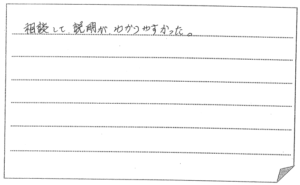 相談して説明がわかりやすかった。